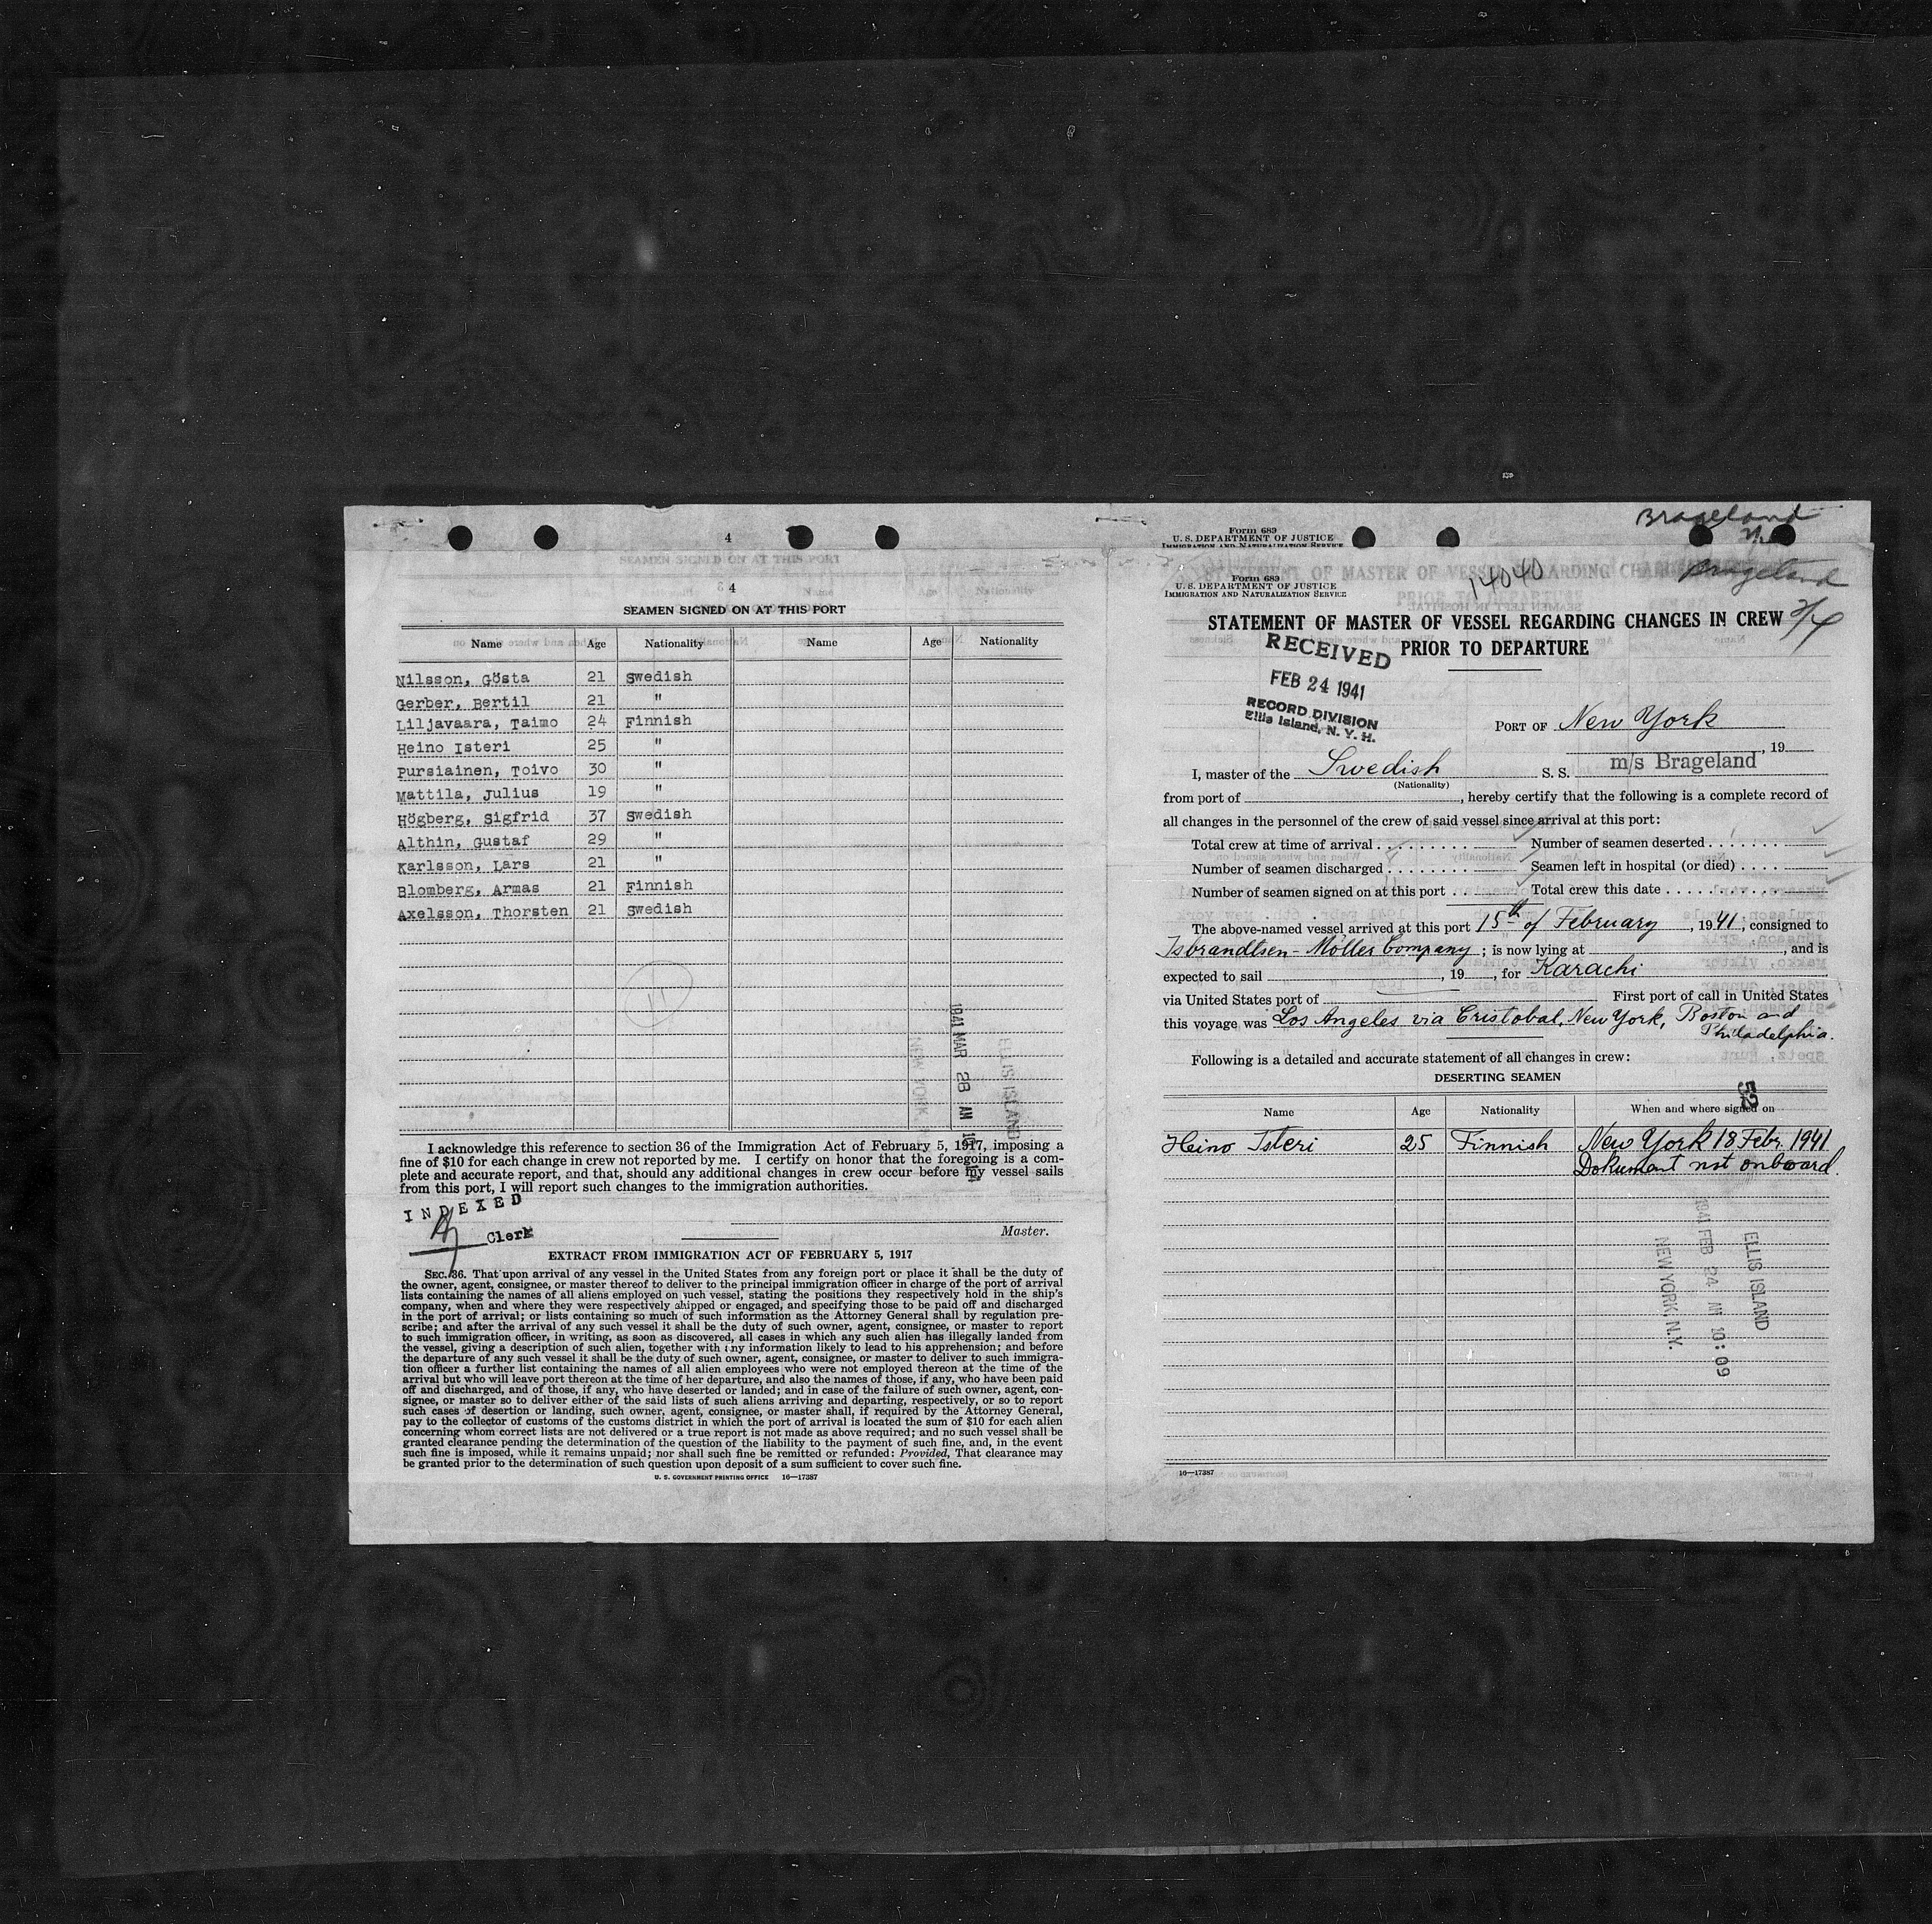 4
4
SEAMEN SIGNED ON AT THIS PORT
Name Age Nationality Name Age Nationality
Nilsson, Gösta 21 Swedish
Gerber, Bertil 21 "
Liljavaara, Taimo 24 Finnish
Heino Isteri 25 "
Pursiainen, Toivo 30 "
Mattila, Julius 19 "
Högberg, Sigfrid 37 Swedish
Althin, Gustaf 29 "
Karlsson, Lars 21 "
Blomberg, Armas 21 Finnish
Axelsson, Thorsten 21 Swedish
11
1941 MAR 28 AM
ELLIS ISLAND
NEW YORK
I acknowledge this reference to section 36 of the Immigration Act of February 5, 1917, imposing a
fine of $10 for each change in crew not reported by me. I certify on honor that the foregoing is a com-
plete and accurate report, and that, should any additional changes in crew occur before my vessel sails
from this port, I will report such changes to the immigration authorities.
INDEXED
Clerk
Master.
EXTRACT FROM IMMIGRATION ACT OF FEBRUARY 5, 1917
SEC. 36. That upon arrival of any vessel in the United States from any foreign port or place it shall be the duty of
the owner, agent, consignee, or master thereof to deliver to the principal immigration officer in charge of the port of arrival
lists containing the names of all aliens employed on such vessel, stating the positions they respectively hold in the ship's
company, when and where they were respectively shipped or engaged, and specifying those to be paid off and discharged
in the port of arrival; or lists containing so much of such information as the Attorney General shall by regulation pre-
scribe; and after the arrival of any such vessel it shall be the duty of such owner, agent, consignee, or master to report
to such immigration officer, in writing, as soon as discovered, all cases in which any such alien has illegally landed from
the vessel, giving a description of such alien, together with any information likely to lead to his apprehension; and before
the departure of any such vessel it shall be the duty of such owner, agent, consignee, or master to deliver to such immigra-
tion officer a further list containing the names of all alien employees who were not employed thereon at the time of the
arrival but who will leave port thereon at the time of her departure, and also the names of those, if any, who have been paid
off and discharged, and of those, if any, who have deserted or landed; and in case of the failure of such owner, agent, con-
signee, or master so to deliver either of the said lists of such aliens arriving and departing, respectively, or so to report
such cases of desertion or landing, such owner, agent, consignee, or master shall, if required by the Attorney General,
pay to the collector of customs of the customs district in which the port of arrival is located the sum of $10 for each alien
concerning whom correct lists are not delivered or a true report is not made as above required; and no such vessel shall be
granted clearance pending the determination of the question of the liability to the payment of such fine, and, in the event
such fine is imposed, while it remains unpaid; nor shall such fine be remitted or refunded: Provided, That clearance may
be granted prior to the determination of such question upon deposit of a sum sufficient to cover such fine.
U. S. GOVERNMENT PRINTING OFFICE 16—17387
Form 689
U. S. DEPARTMENT OF JUSTICE
IMMIGRATION AND NATURALIZATION SERVICE
Brageland
Form 689
U. S. DEPARTMENT OF JUSTICE
IMMIGRATION AND NATURALIZATION SERVICE
14040
Brageland
2/4
STATEMENT OF MASTER OF VESSEL REGARDING CHANGES IN CREW
PRIOR TO DEPARTURE
RECEIVED
FEB 24 1941
RECORD DIVISION
Ellis Island, N. Y. H.
PORT OF New York
, 19
I, master of the Swedish S. S. m/s Brageland
(Nationality)
from port of , hereby certify that the following is a complete record of
all changes in the personnel of the crew of said vessel since arrival at this port:
Total crew at time of arrival Number of seamen deserted
Number of seamen discharged Seamen left in hospital (or died)
Number of seamen signed on at this port Total crew this date
The above-named vessel arrived at this port 15th of February , 1941, consigned to
Isbrandtsen-Möller Company ; is now lying at , and is
expected to sail , 19 , for Karachi
via United States port of First port of call in United States
this voyage was Los Angeles via Cristobal, New York, Boston and
Philadelphia.
Following is a detailed and accurate statement of all changes in crew:
DESERTING SEAMEN
52
Name Age Nationality When and where signed on
Heino Isteri 25 Finnish New York 18 Febr. 1941
Dokument not onboard.
1941 FEB 24 AM 10:09
ELLIS ISLAND
NEW YORK, N.Y.
16—17387